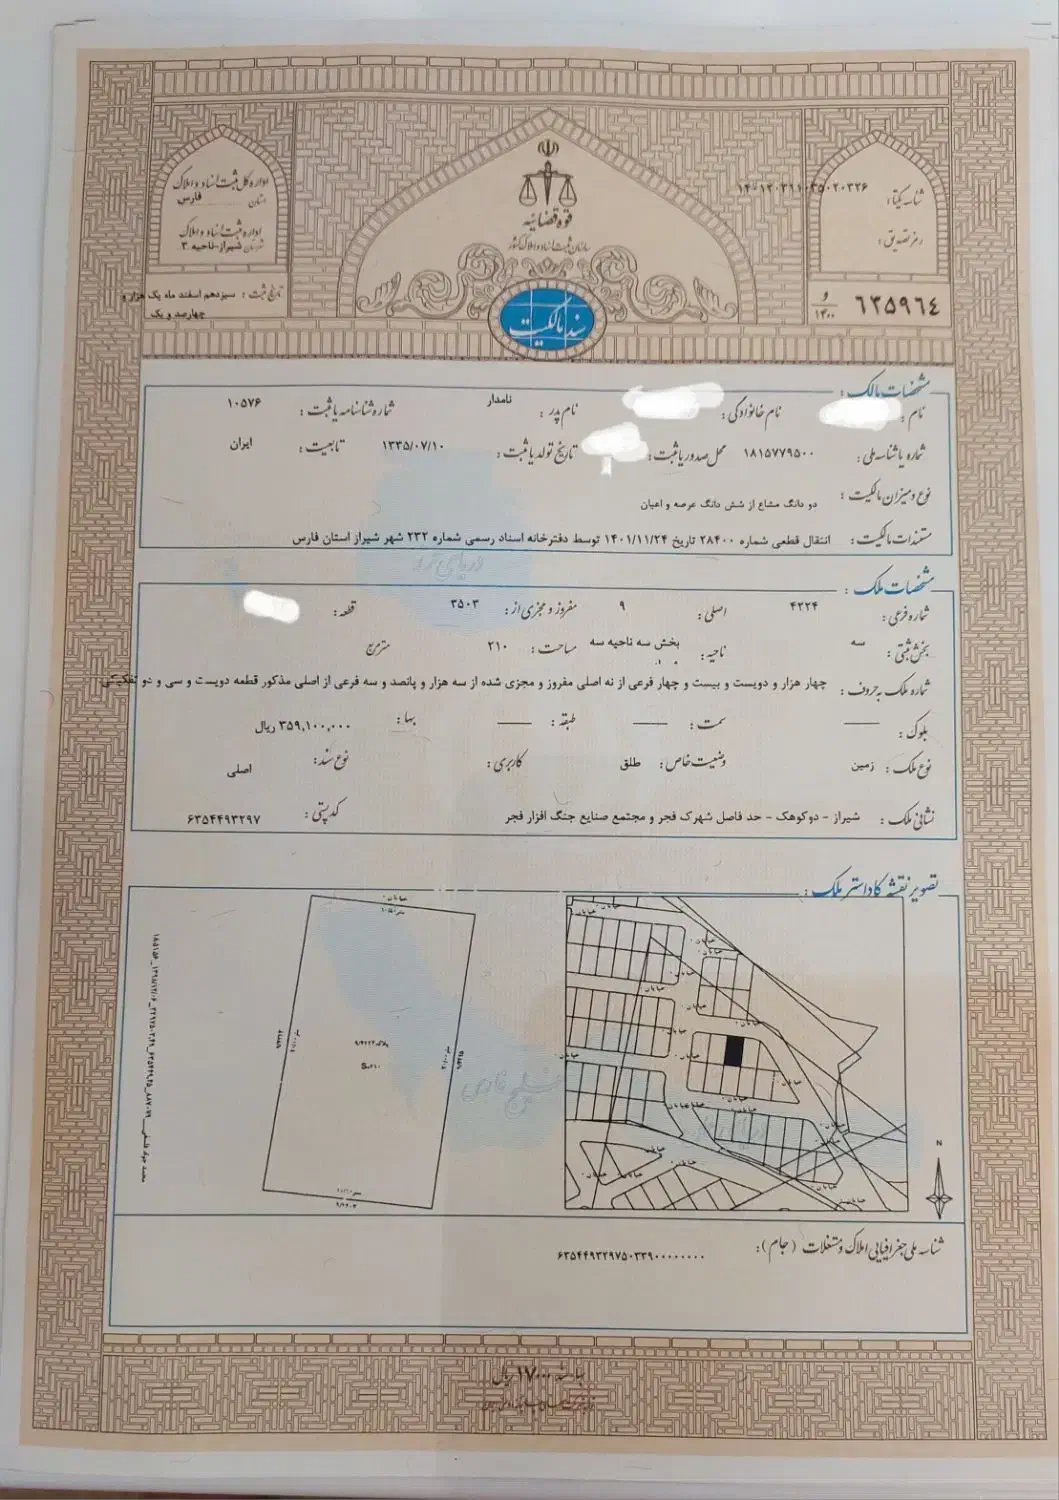 قوه قضائیه
سازمان ثبت اسناد و املاک کشور
سند مالکیت
اداره کل ثبت اسناد و املاک
استان فارس
اداره ثبت اسناد و املاک
شیراز-ناحیه ۳
تاریخ ثبت : سیزدهم اسفند ماه یک هزار و
چهارصد و یک
شناسه یکتا :
رمز تصدیق :
۶۲۵۹۶۴
و
۱۴۰۰
مشخصات مالک :
نام : نام خانوادگی : نام پدر : نامدار شماره شناسنامه یا ثبت : ۱۰۵۷۶
شماره یا شناسه ملی : ۱۸۱۵۷۷۹۵۰۰ محل صدور یا ثبت : تاریخ تولد یا ثبت : ۱۳۳۵/۰۷/۱۰ تابعیت : ایران
نوع و میزان مالکیت : دو دانگ مشاع از شش دانگ عرصه و اعیان
مستندات مالکیت : انتقال قطعی شماره ۲۸۴۰۰ تاریخ ۱۴۰۱/۱۱/۲۴ توسط دفترخانه اسناد رسمی شماره ۲۳۲ شهر شیراز استان فارس
مشخصات ملک :
شماره فرعی : ۴۲۲۴ اصلی : ۹ مفروز و مجزی از : ۳۵۰۳ قطعه :
بخش ثبتی : سه ناحیه : بخش سه ناحیه سه مساحت : ۲۱۰ مترمربع
شماره ملک به حروف : چهار هزار و دویست و بیست و چهار فرعی از نه اصلی مفروز و مجزی شده از سه هزار و پانصد و سه فرعی از اصلی مذکور قطعه دویست و سی و دو تفکیکی
بلوک : —— سمت : —— طبقه : —— بها : ۳۵۹,۱۰۰,۰۰۰ ریال
نوع ملک : زمین وضعیت خاص : طلق کاربری : نوع سند : اصلی
نشانی ملک : شیراز - دوکوهک - حد فاصل شهرک فجر و مجتمع صنایع جنگ افزار فجر کدپستی : ۶۳۵۴۴۹۳۲۹۷
تصویر نقشه کاداستر ملک :
خیابان
پلاک ۹/۴۲۲۴
S=۲۱۰
N
شناسه ملی جغرافیایی املاک و مستغلات (جام) : ۶۳۵۴۴۹۳۲۹۷۵۰۳۳۹۰۰۰۰۰۰۰۰۰
بها سند ۱۷۰۰۰۰ ریال